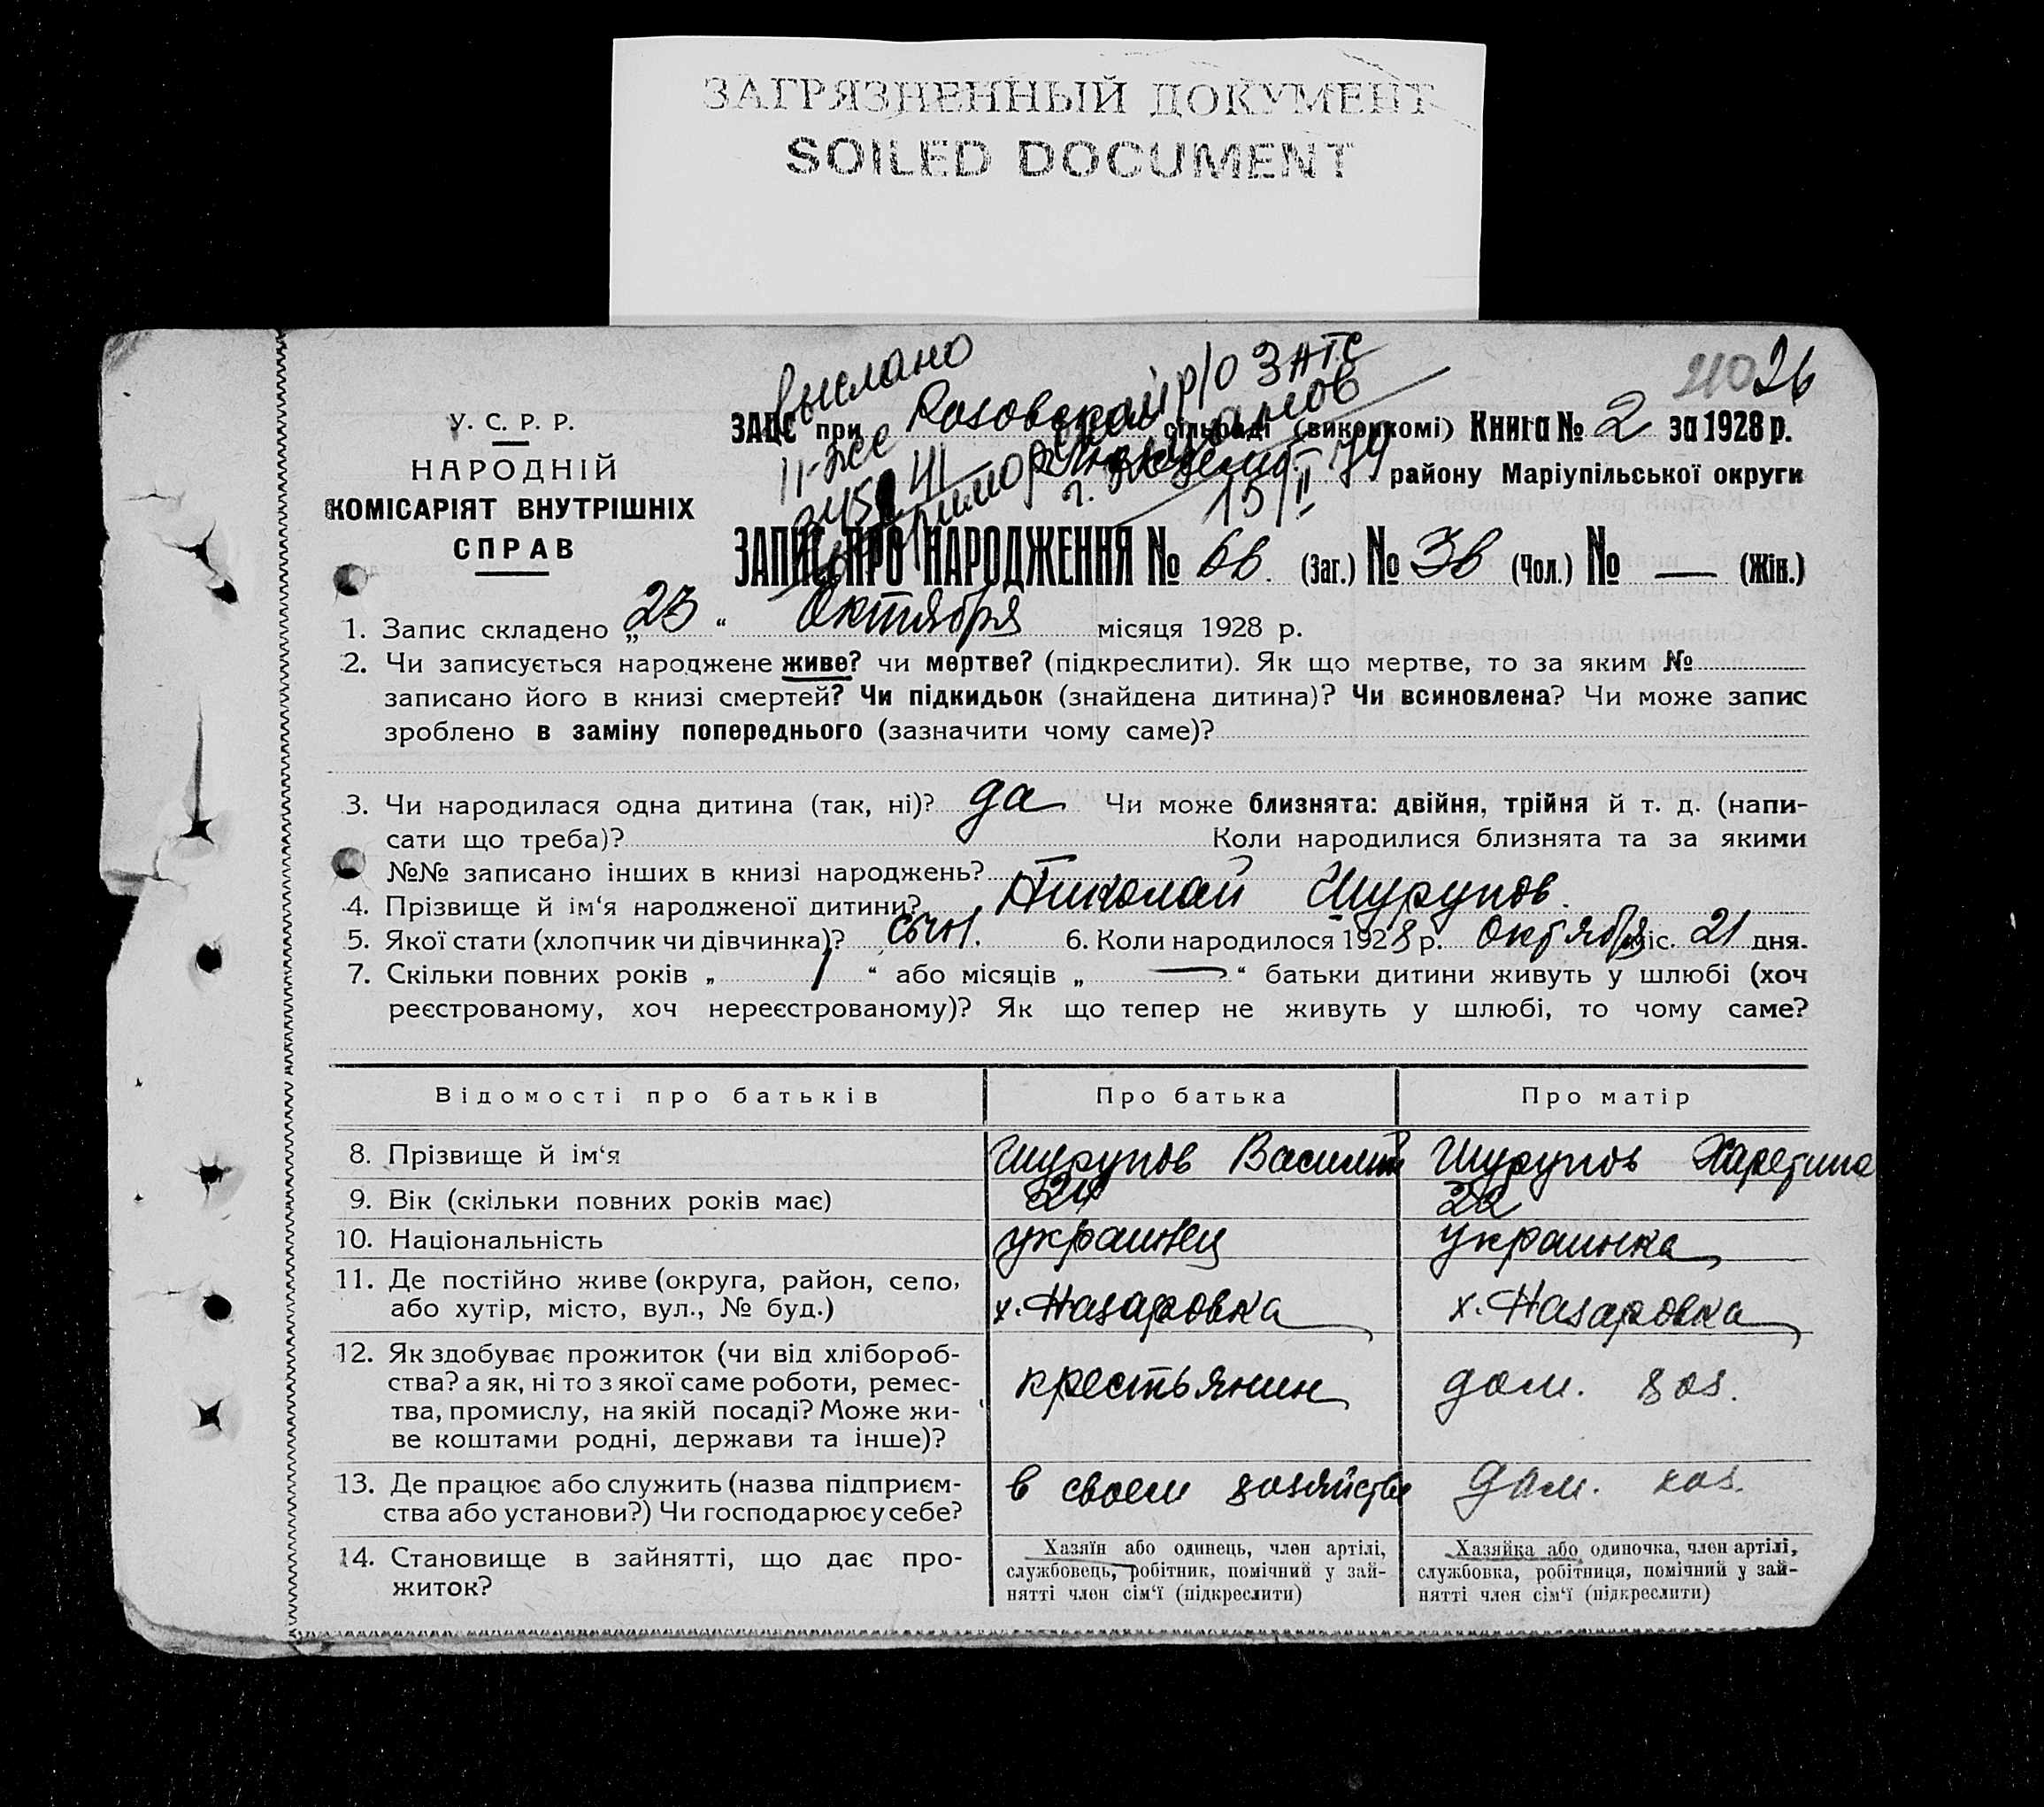 ЗАГРЯЗНЕННЫЙ ДОКУМЕНТ
SOILED DOCUMENT
210 26
У. С. Р. Р.
НАРОДНІЙ
КОМІСАРІЯТ ВНУТРІШНІХ
СПРАВ
выслано
р/о ЗАГС
15/II
ЗАЦС при Розовской сільраді (виконкомі) Книга № 2 за 1928 р.
району Маріупільської округи
ЗАПИС ПРО НАРОДЖЕННЯ № 66. (Заг.) № 36 (Чол.) № — (Жін.)
1. Запис складено „23“ Октября місяця 1928 р.
2. Чи записується народжене живе? чи мертве? (підкреслити). Як що мертве, то за яким №
записано його в книзі смертей? Чи підкидьок (знайдена дитина)? Чи всиновлена? Чи може запис
зроблено в заміну попереднього (зазначити чому саме)?
3. Чи народилася одна дитина (так, ні)? да Чи може близнята: двійня, трійня й т. д. (напи-
сати що треба)? Коли народилися близнята та за якими
№№ записано інших в книзі народжень?
4. Прізвище й ім‘я народженої дитини? Николай Шурупов.
5. Якої стати (хлопчик чи дівчинка)? сын. 6. Коли народилося 1928 р. Октября міс. 21 дня.
7. Скільки повних років „ 1 “ або місяців „ — “ батьки дитини живуть у шлюбі (хоч
реєстрованому, хоч нереєстрованому)? Як що тепер не живуть у шлюбі, то чому саме?
Відомості про батьків Про батька Про матір
8. Прізвище й ім‘я Шурупов Василий Шурупов Харетина
9. Вік (скільки повних років має) 24 22
10. Національність украинец украинка
11. Де постійно живе (округа, район, село,
або хутір, місто, вул., № буд.) х. Назаровка х. Назаровка
12. Як здобуває прожиток (чи від хлібороб-
ства? а як, ні то з якої саме роботи, ремес- крестьянин дом. хоз.
тва, промислу, на якій посаді? Може жи-
ве коштами родні, держави та інше)?
13. Де працює або служить (назва підприєм- в своем хозяйстве дом. хоз.
ства або установи?) Чи господарює у себе?
14. Становище в зайнятті, що дає про-
житок?
Хазяїн або одинець, член артілі,
службовець, робітник, помічний у зай-
нятті член сім‘ї (підкреслити)
Хазяйка або одиночка, член артілі,
службовка, робітниця, помічний у зай-
нятті член сім‘ї (підкреслити)